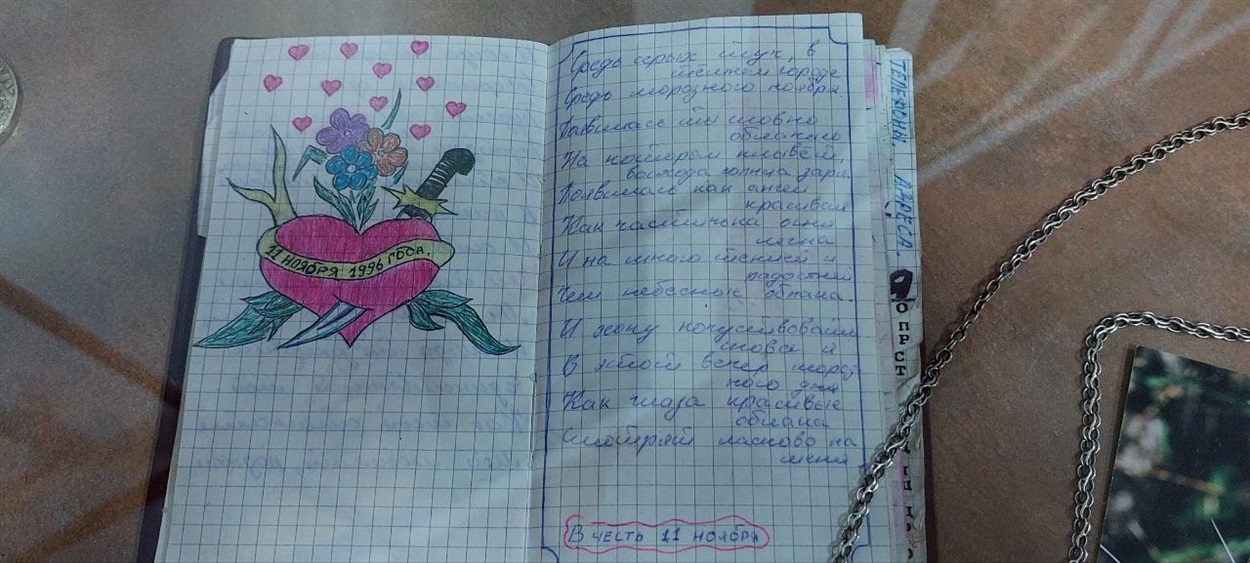 11 НОЯБРЯ 1996 ГОДА.
Средь серых туч, в
тёмном городе
Средь морозного ноября
Появилась ты словно
облачко
На котором плывёт,
восхода солнца заря
Появилась как ангел
красивая
Как частичка огня
легка
И на много теплей и
радостней
Чем небесные облака.
И хочу почувствовать
снова я
В этот вечер мороз-
ного дня
Как глаза красивые
облака
Смотрят ласково на
меня
В ЧЕСТЬ 11 НОЯБРЯ
ТЕЛЕФОНЫ, АДРЕСА.
О
П Р
С Т